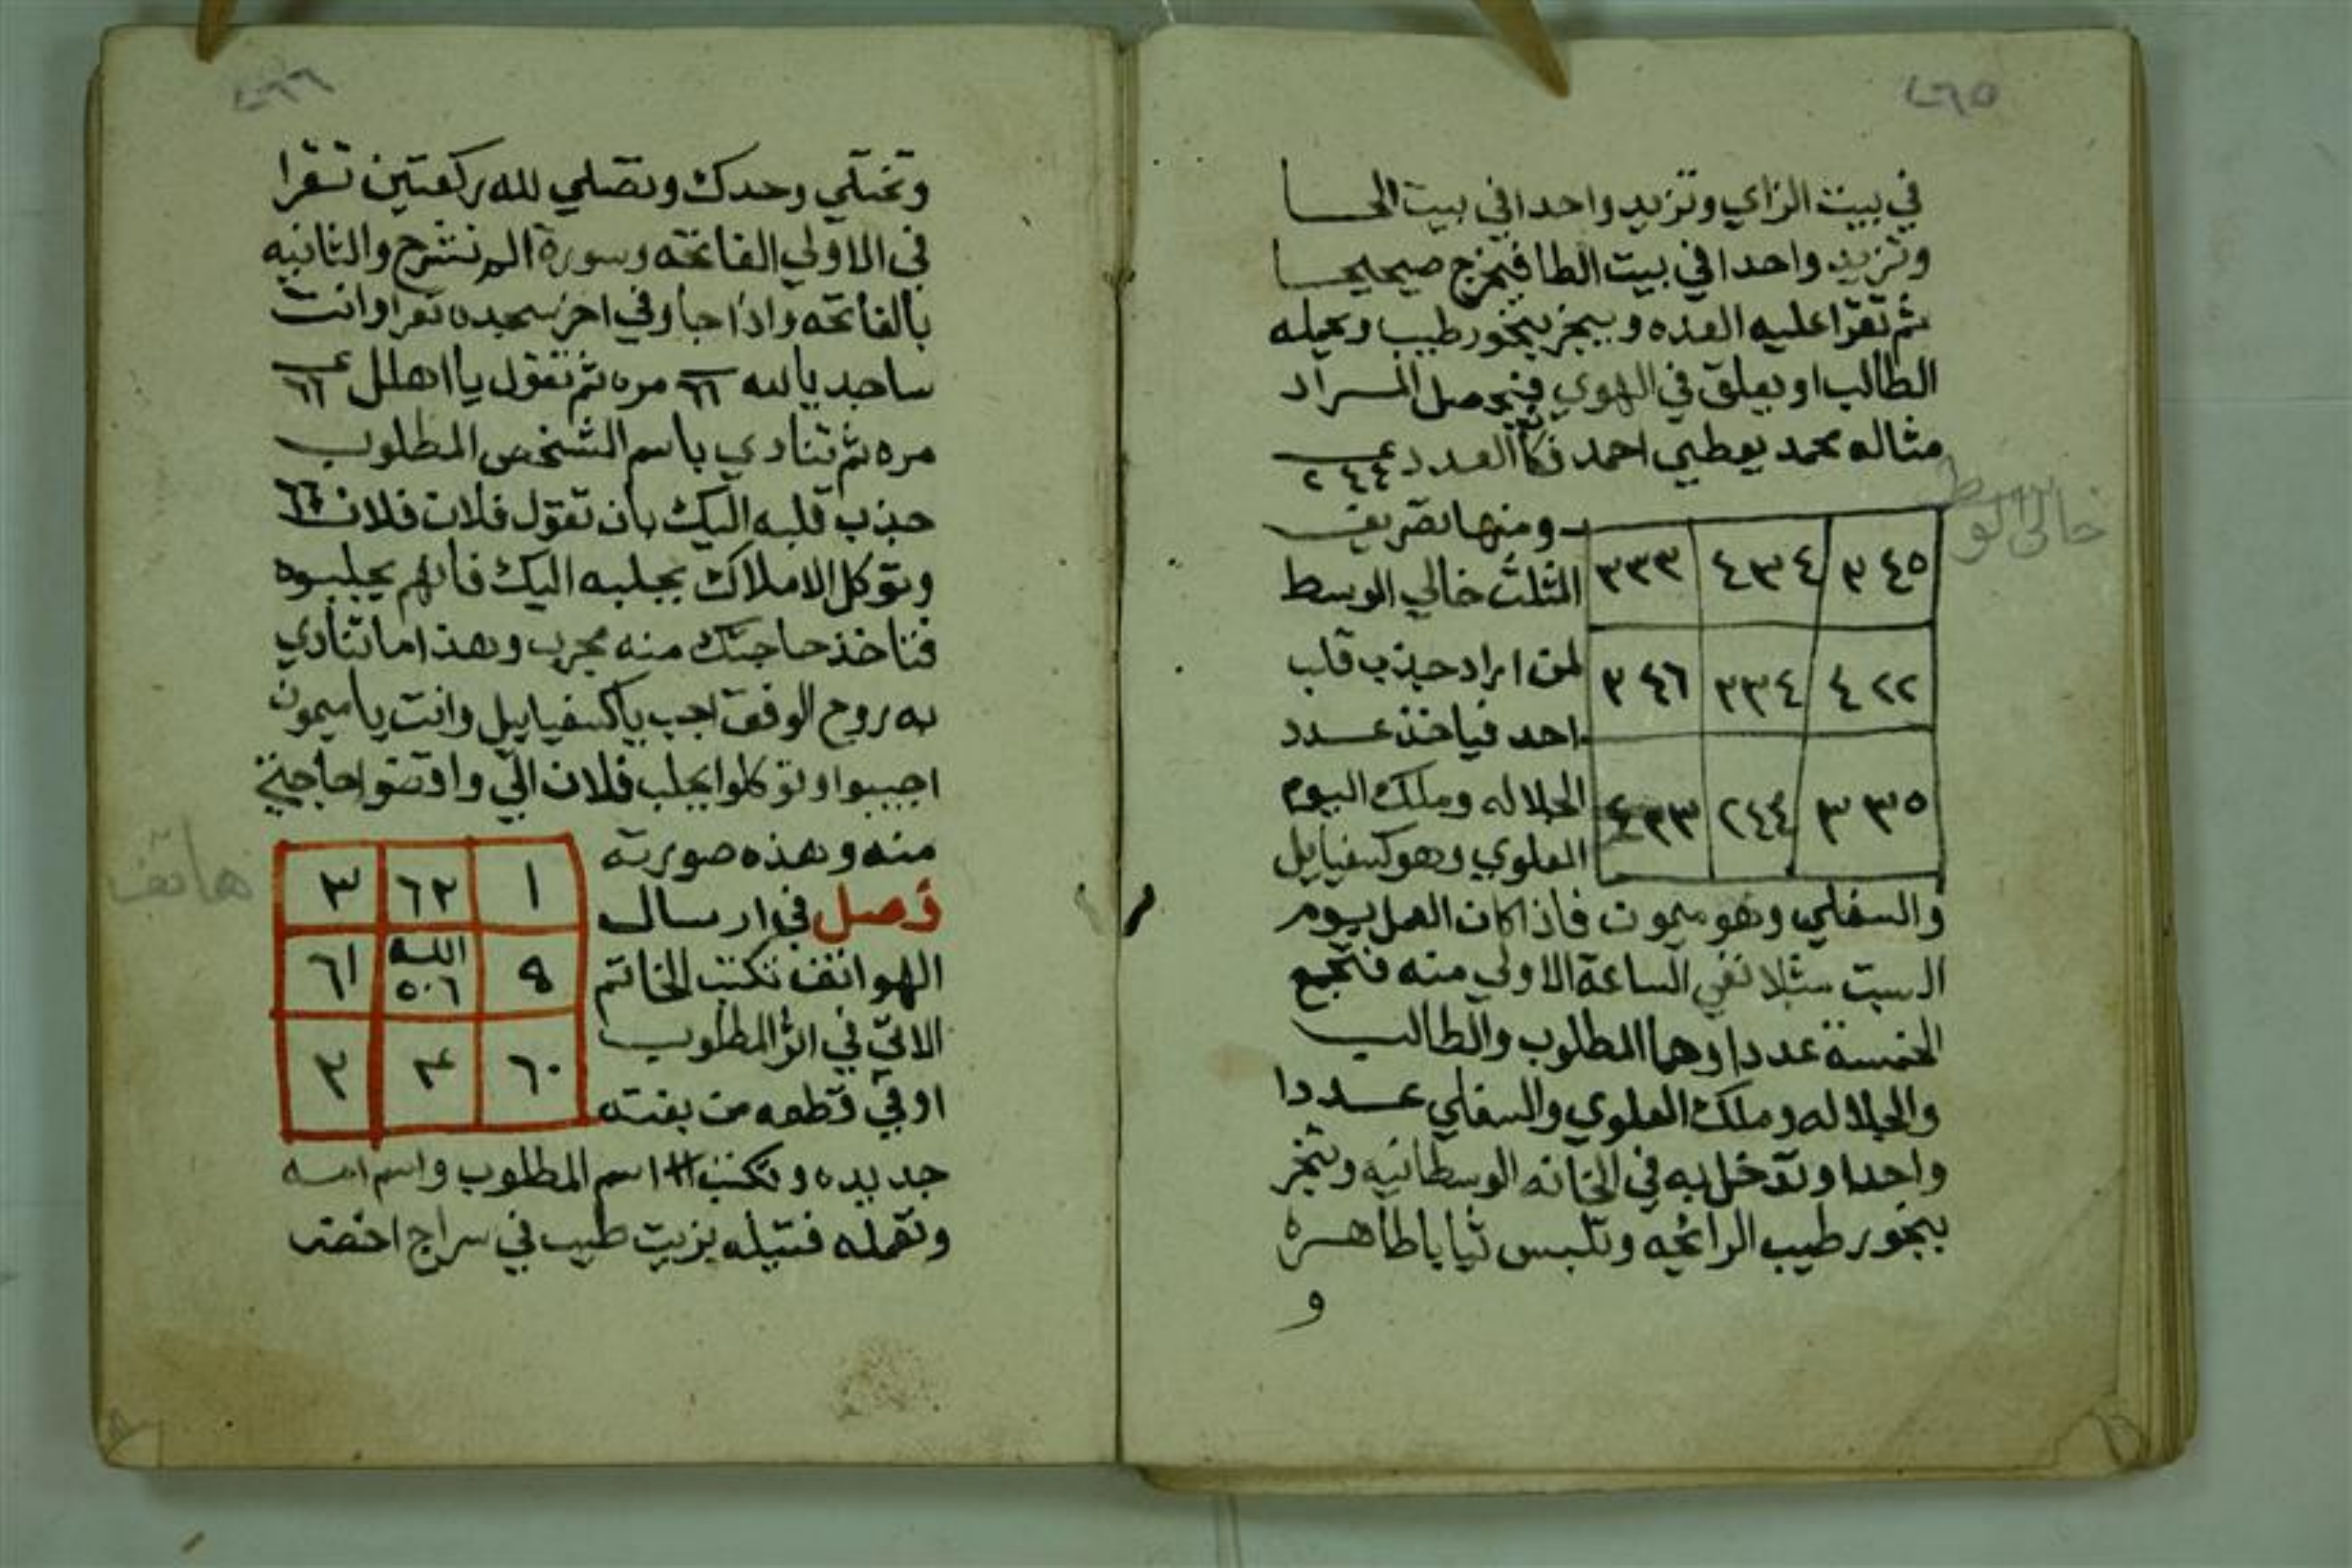 ٤٦٥
في بيت الزاي وتزيد واحدا في بيت الحا
وتزيد واحدا في بيت الطا فيخرج صحيحا
ثم تقرا عليه العده ويبخر ببخور طيب ويحمله
الطالب او يعلق في الهوي فيحصل المراد
مثاله محمد يعطي احمد فكان العدد ٢٤٤
ومنها تصريف
المثلث خالي الوسط
لمن اراد جذب قلب
احد فياخذ عدد
الجلاله وملك اليوم
العلوي وهو كسفيايل
خالي الوسط
٣٤٥ ٤٣٤ ٣٣٣
٤٢٢ ٣٣٤ ٣٤٦
٣٣٥ ٢٤٤ ٤٣٣
والسفلي وهو ميمون فاذا كان العمل يوم
السبت مثلا نفي الساعة الاولي منه فتجمع
الخمسة عددا وهما المطلوب والطالب
والجلاله وملك العلوي والسفلي عددا
واحدا وتدخل به في الخانه الوسطانيه وتبخر
ببخور طيب الرائحه وتلبس ثيابا طاهره
و
٤٦٦
وتختلي وحدك وتصلي لله ركعتين تقرا
في الاولي الفاتحه وسورة الم نشرح والثانيه
بالفاتحه واذا جا وفي اخر سجده تقرا وانت
ساجد يا الله ٦٦ مره ثم تقول يا اهلل ٦٦
مره ثم تنادي باسم الشخص المطلوب
جذب قلبه اليك بان تقول فلان فلان ٦٦
وتوكل الاملاك بجلبه اليك فانهم يجلبوه
فتاخذ حاجتك منه مجرب وهذا ما تنادي
به روح الوفق اجب يا كسفيايل وانت يا ميمون
اجيبوا وتوكلوا بجلب فلان الي واقضوا حاجتي
منه وهذه صورته
فصل في ارسال
الهواتف تكتب الخاتم
الاتي في اثر المطلوب
او في قطعه من بفته
هاتف
١ ٦٢ ٣
٩ الله ٥٠٦ ٦١
٦٠ ٣ ٢
جديده وتكتب اسم المطلوب واسم امه
وتعمله فتيله بزيت طيب في سراج اخضر